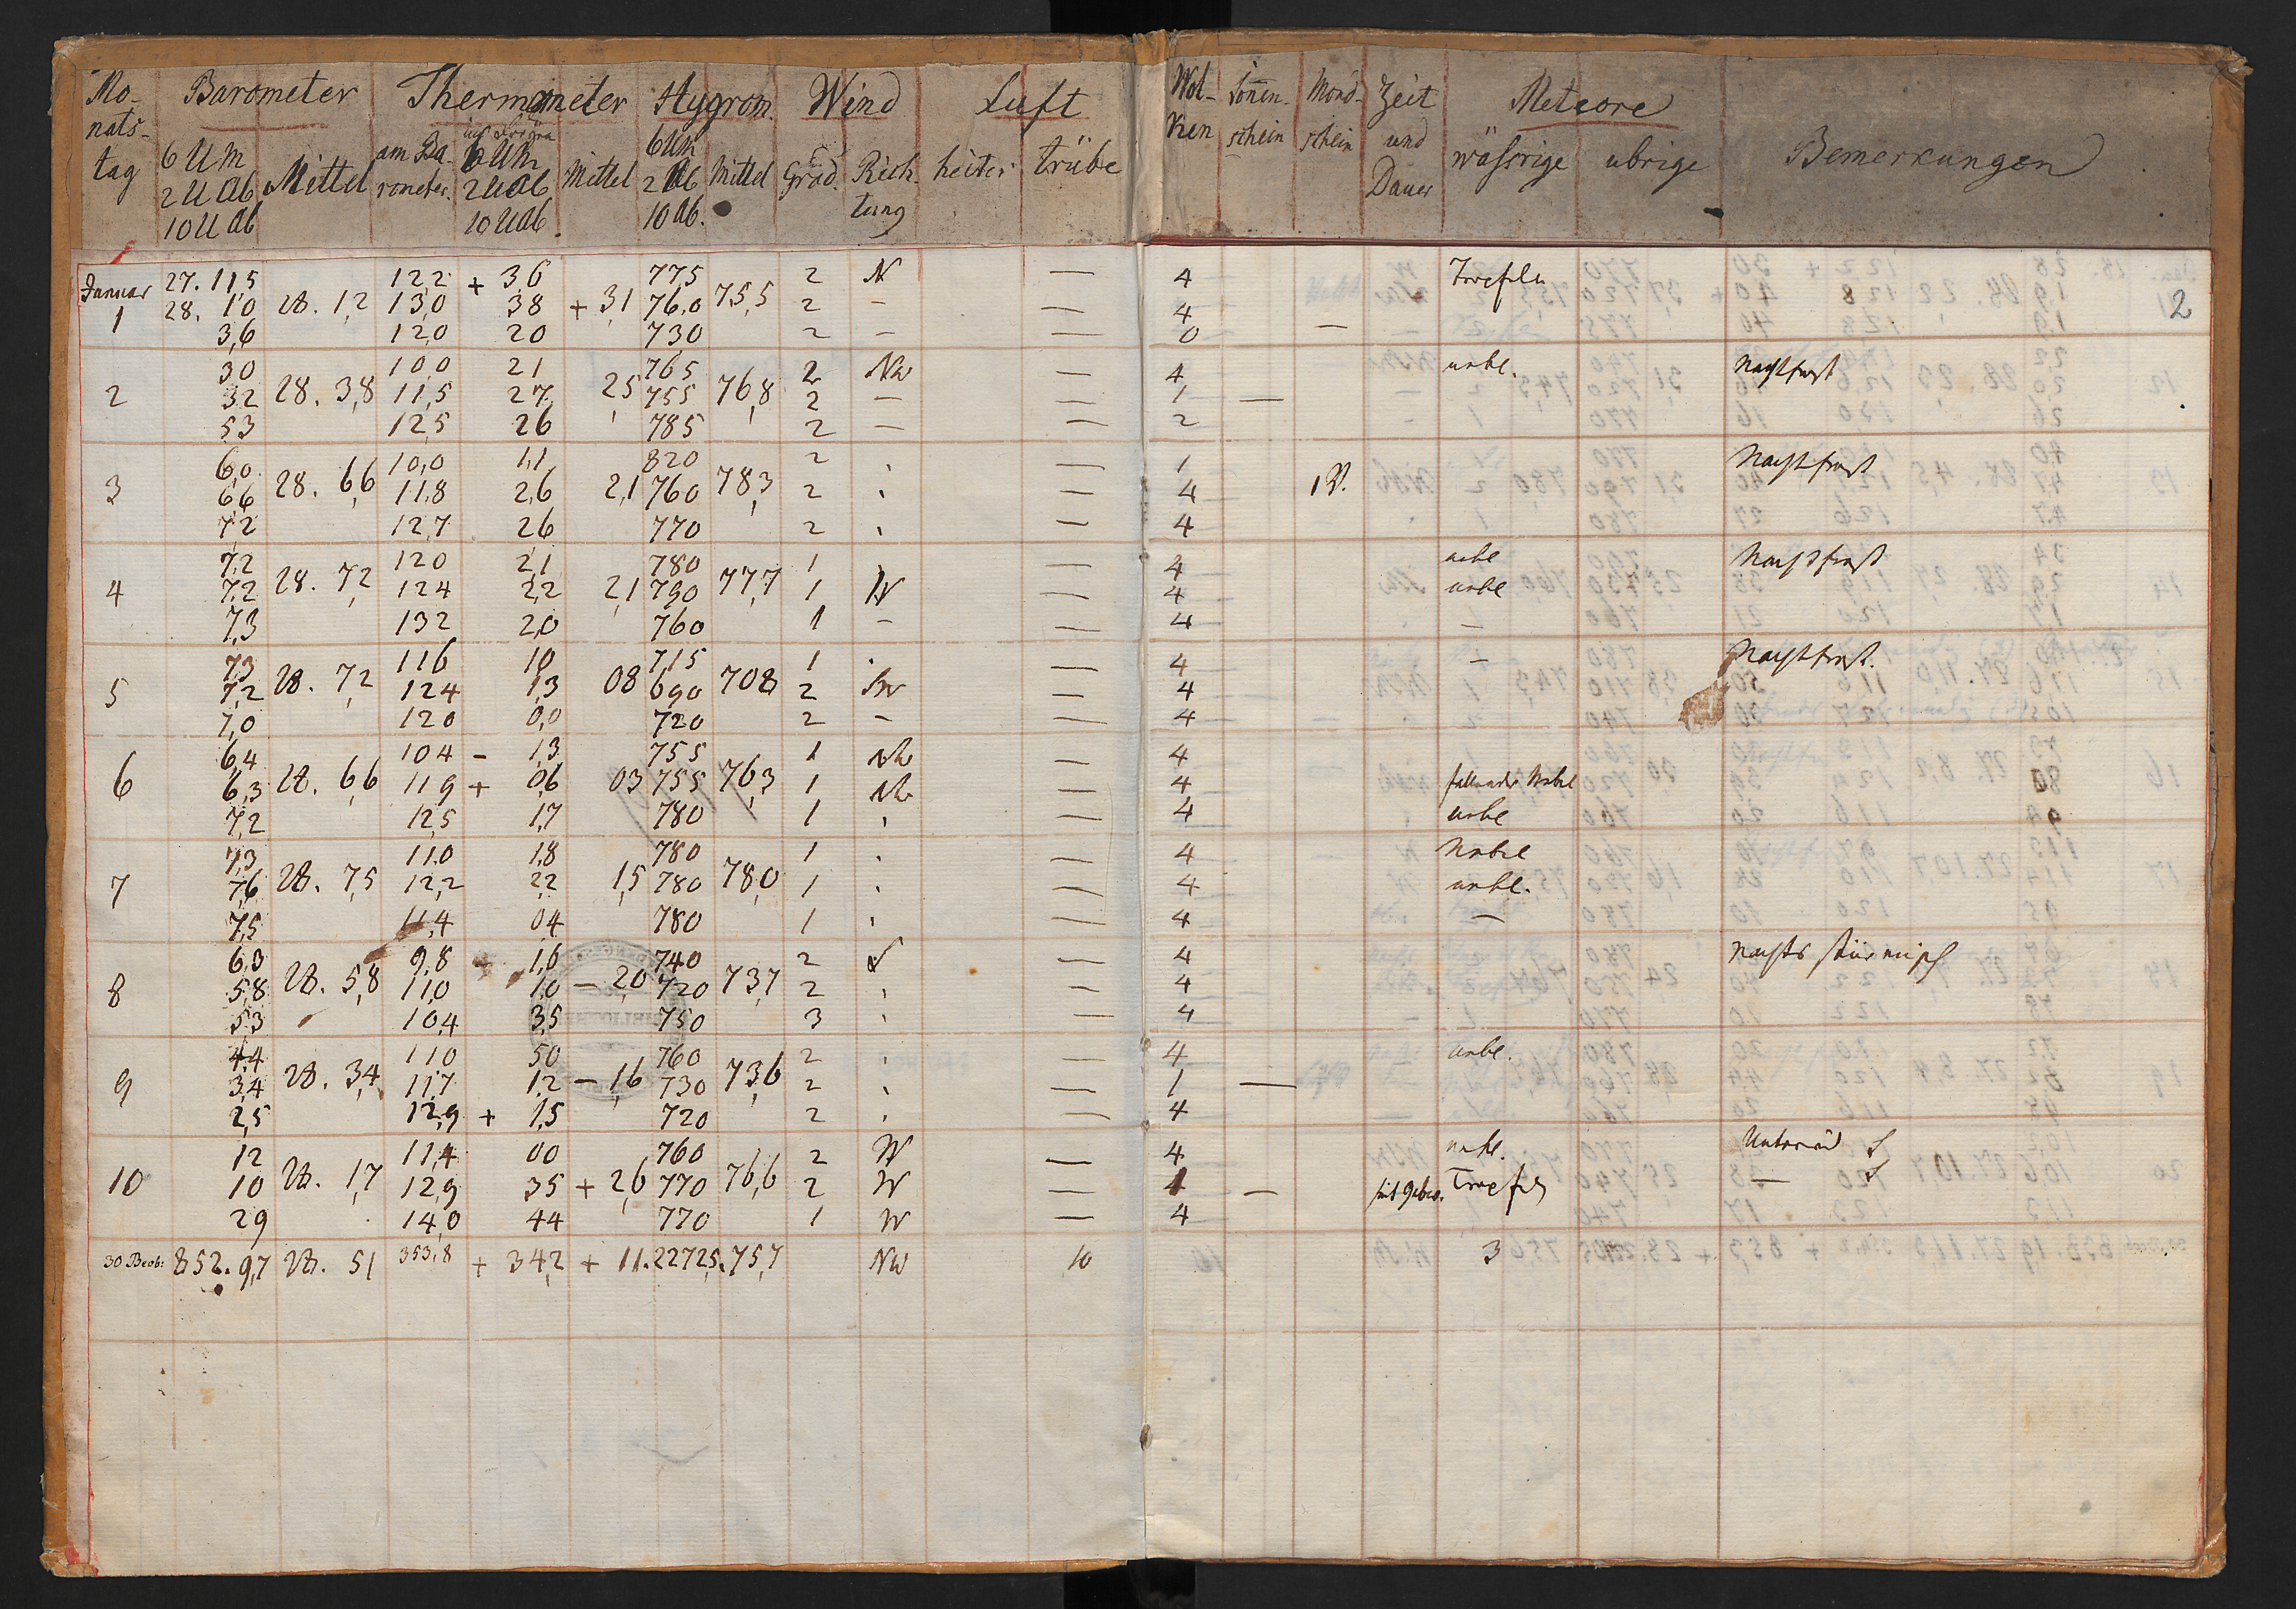 Mo- Barometer Thermometer Hygrom. Wind Luft Wol- Sonen- Mond- Zeit Meteore
nats- im Freyen ken schein schein und
tag 6 U M Mittel am Ba- 6 UM Mittel 6 UM Mittel Grad. Rich- heiter trübe Dauer wässrige ubrige Bemerkungen
2 U Ab rometer. 2 U Ab 2 Ab tung
10 U Ab 10 U Ab. 10 Ab.
2
Januar 27. 11,5 12,2 + 3,6 77,5 2 N — 4 Tropfeln
1 28. 1,0 28. 1,2 13,0 38 + 3,1 76,0 75,5 2 – — 4
3,6 12,0 20 730 2 – — 0 —
30 10,0 21 765 2 NW — 4 nebl. Nachtfrost
2 32 28. 3,8 11,5 27 2,5 755 76,8 2 — — 1 —
53 12,5 26 785 2 — — 2
6,0 10,0 1,1 820 2 , — 1 Nachtfrost
3 66 28. 6,6 11,8 2,6 2,1 760 78,3 2 , — 4 1 V.
7,2 12,7 26 770 2 , — 4
7,2 120 2,1 780 1 , — 4 nebl Nachtfrost
4 7,2 28. 7,2 124 2,2 2,1 790 77,7 1 W — 4 nebl
7,3 132 2,0 760 1 – — 4 —
7,3 116 10 7,15 1 . — 4 — Nachtfrost.
5 7,2 28. 7,2 124 1,3 08 690 708 2 SW — 4
7,0 120 0,0 720 2 – — 4
6,4 104 – 1,3 755 1 — 4
6 6,3 28. 6,6 119 + 0,6 03 755 76,3 1 — 4 fallender Nebel
7,2 12,5 1,7 780 1 , — 4 nebl
7,3 11,0 1,8 780 1 . — 4 Nebel
7 7,6 28. 7,5 12,2 2,2 1,5 780 78,0 1 , — 4 nebl.
7,5 11,4 04 780 1 , — 4 —
6,3 9,8 – 1,6 740 2 — 4 Nachts stürmisch
8 5,8 28. 5,8 11,0 1,0 – 2,0 720 73,7 2 , — 4
5,3 10,4 3,5 750 3 , — 4
4,4 11,0 50 760 2 , — 4 nebl.
9 3,4 28. 3,4 11,7 1,2 – 1,6 730 73,6 2 , — 1 —
2,5 12,9 + 1,5 720 2 , — 4
12 11,4 00 760 2 W — 4 nebl. Unterwind S
10 10 28. 1,7 12,9 35 + 2,6 770 76,6 2 W — 1 — Tropfeln — S
29 14,0 44 770 1 W — 4
30 Beob: 852. 9,7 28. 51 353,8 + 34,2 + 11. 22725. 75,7 NW 10 3